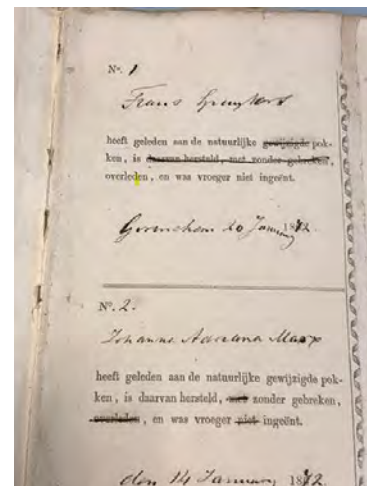 No. 1
Frans
heeft geleden aan de natuurlijke gewijzigde pok-
ken, is daarvan hersteld, met zonder gebreken,
overleden, en was vroeger niet ingeënt.
Gorinchem 20 January 1872.
No. 2.
Johanna Adriana
heeft geleden aan de natuurlijke gewijzigde pok-
ken, is daarvan hersteld, met zonder gebreken,
overleden, en was vroeger niet ingeënt.
den 14 January 1872.